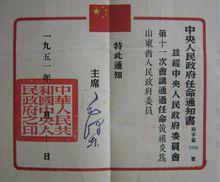 中央人民政府任命通知書
府字第 號
茲經中央人民政府委員會
第十一次會議通過任命黃祖炎為
山東省人民政府委員
特此通知
主席
毛澤東
一九五一年 月 日
中華人民共
和國中央人
民政府之印